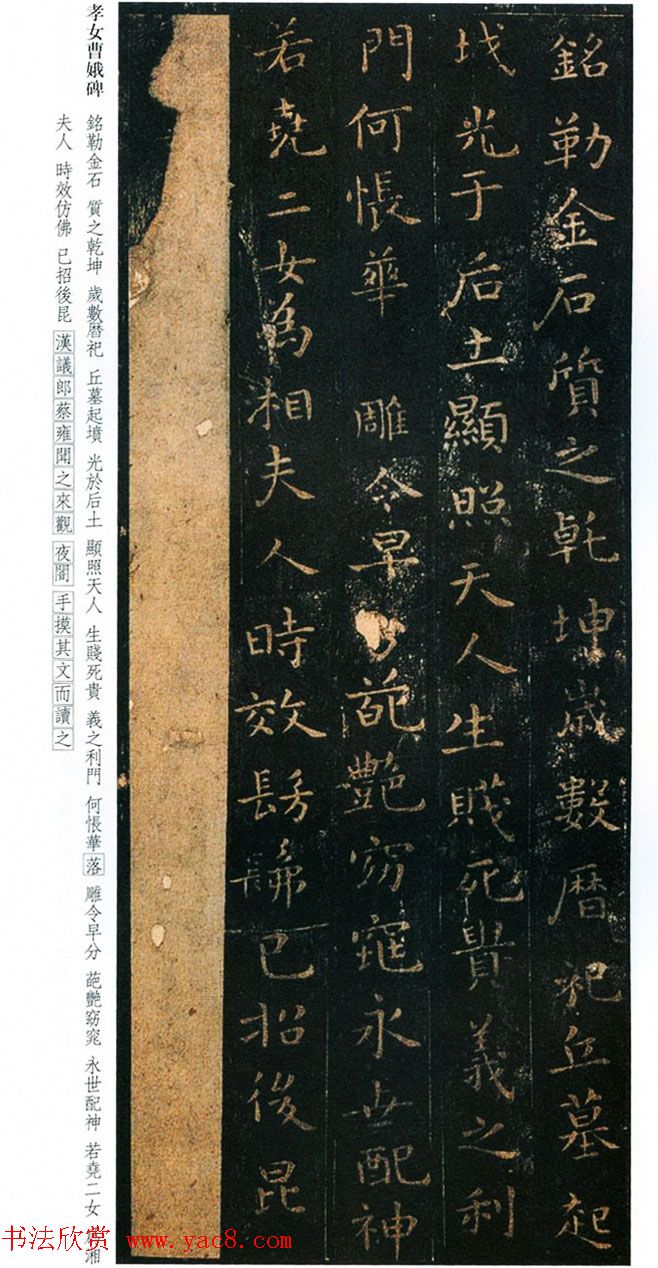 銘勒金石質之乹坤歲數曆祀丘墓起
坟光于后土顯照天人生賤死貴義之利
門何悵華 雕令早分葩艷窈窕永世配神
若堯二女為相夫人時效髣髴已招後昆
孝女曹娥碑
銘勒金石 質之乾坤 歲數曆祀 丘墓起墳 光於后土 顯照天人 生賤死貴 義之利門 何悵華落 雕令早分 葩艷窈窕 永世配神 若堯二女 湘
夫人 時效仿佛 已招後昆 漢議郎蔡雍聞之來觀 夜闇 手摸其文而讀之
书法欣赏 www.yac8.com